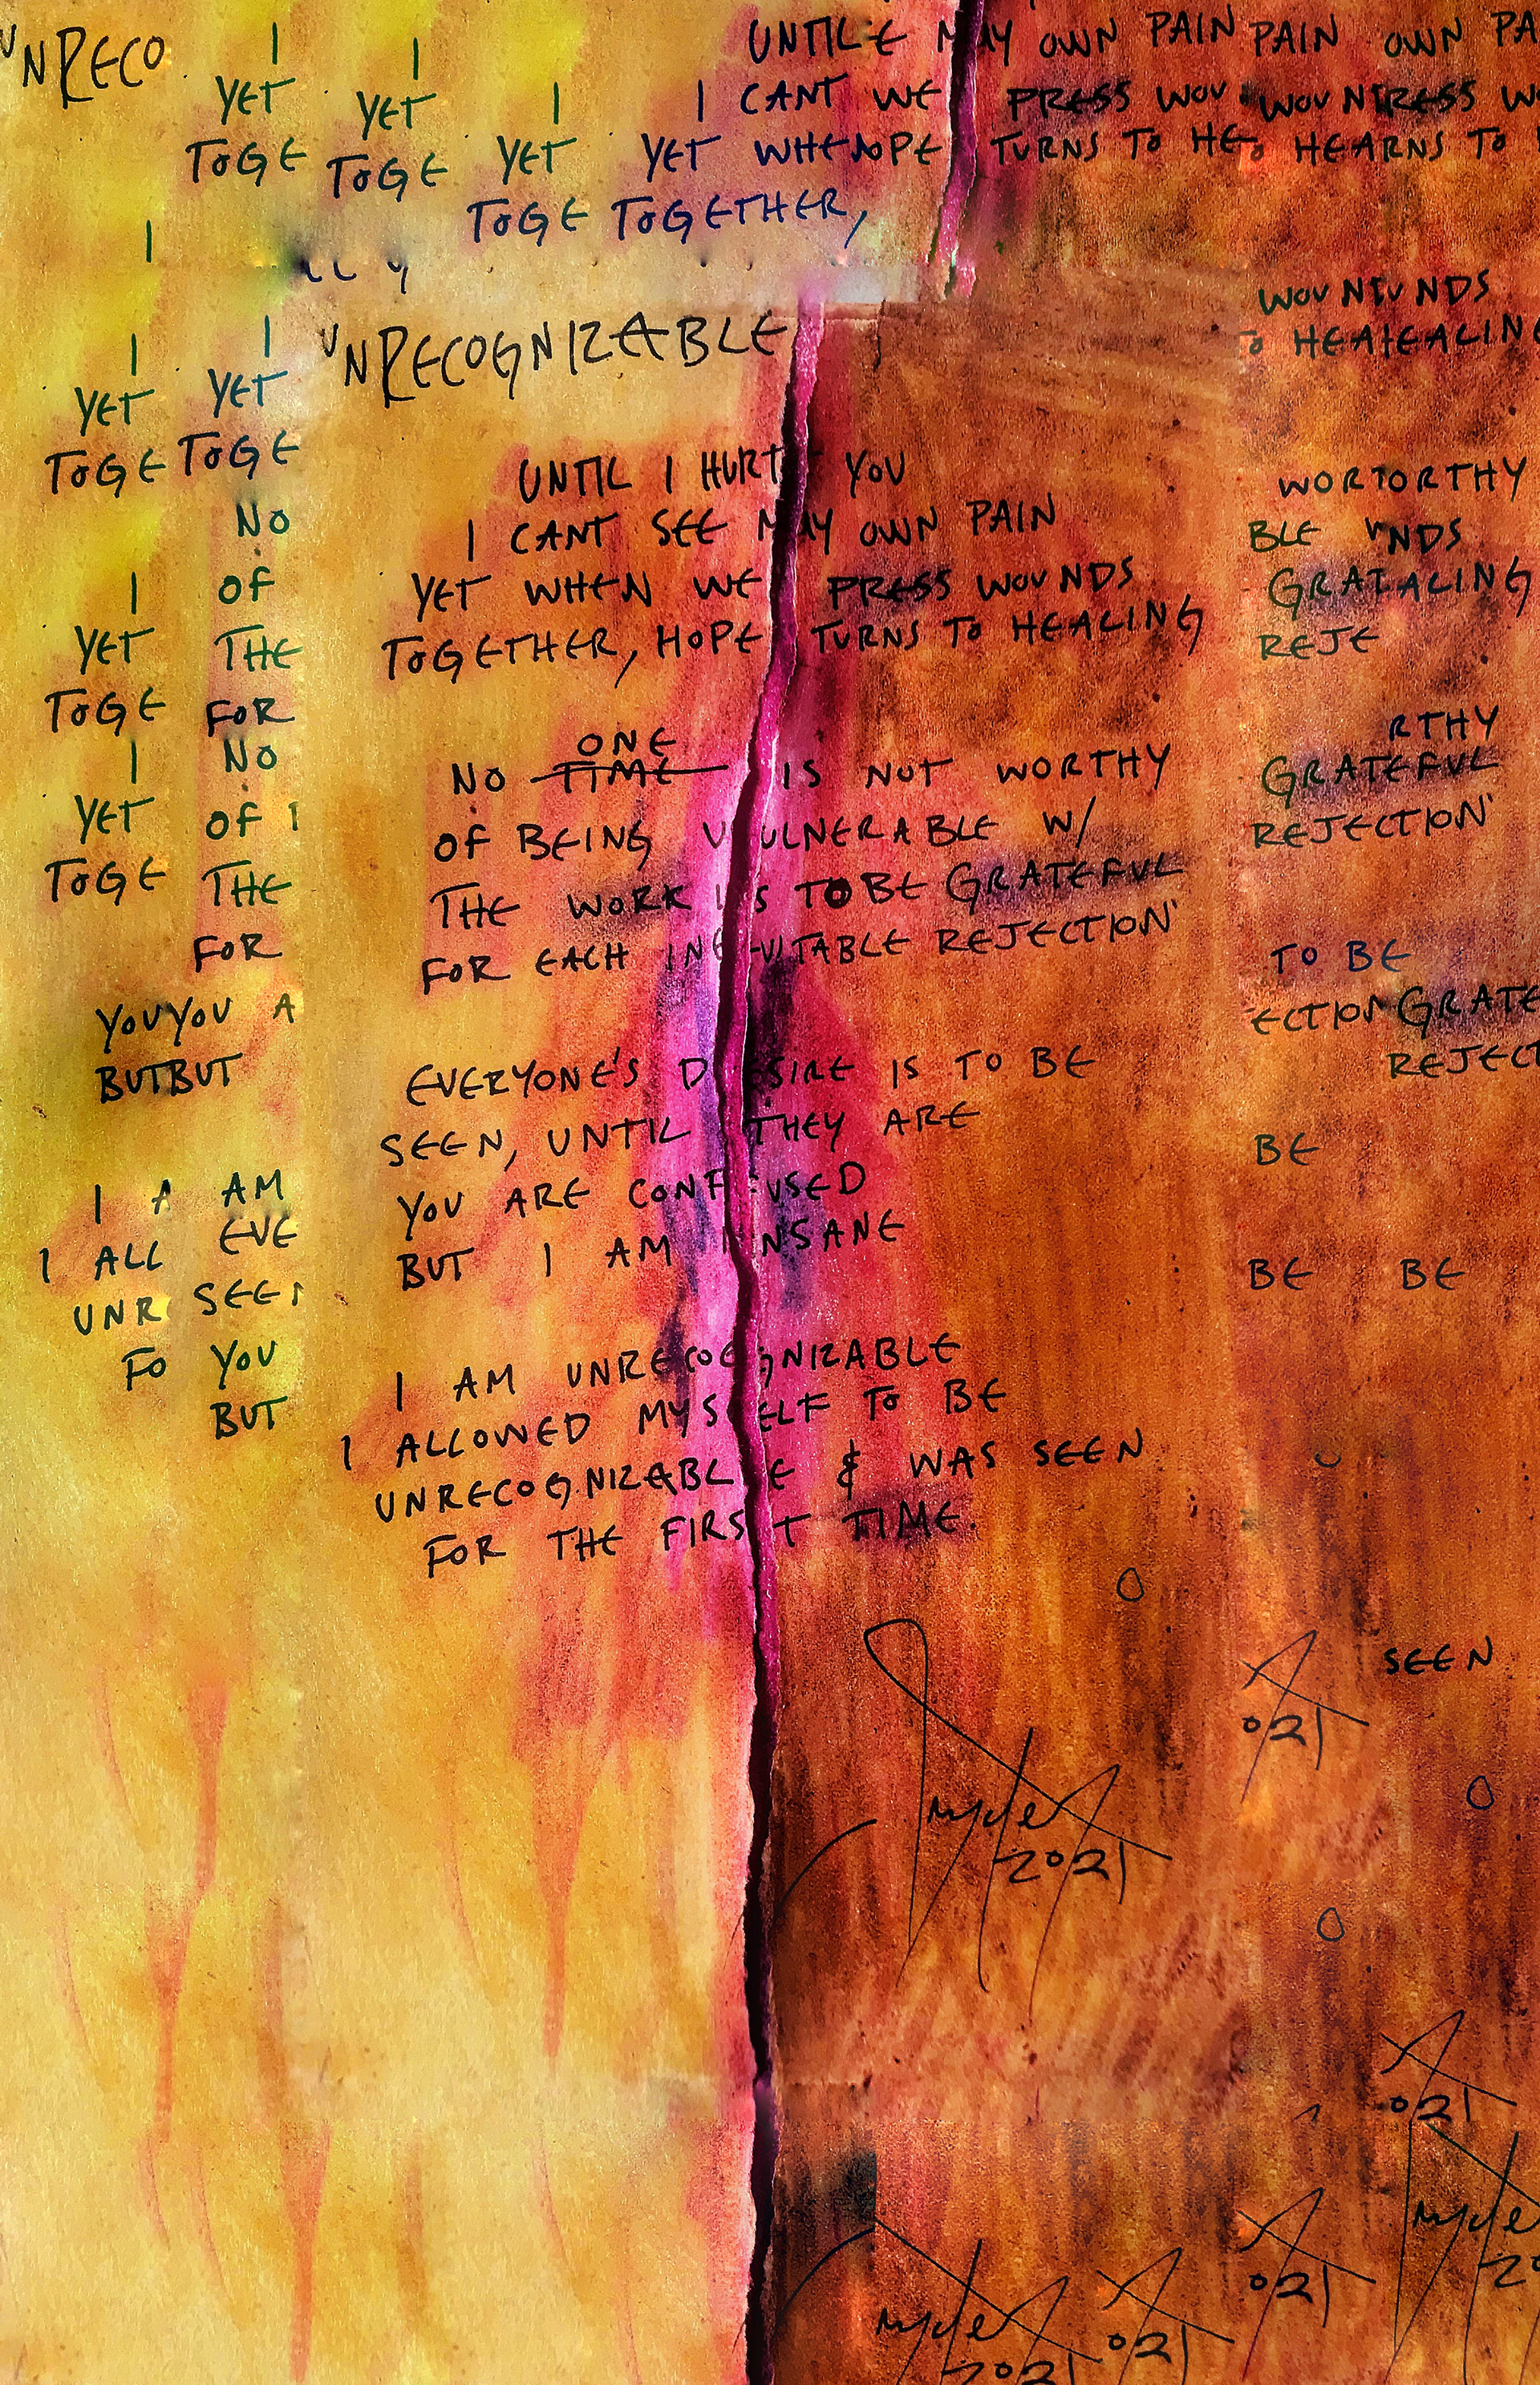 UNRECO
I I UNTIL E MY OWN PAIN PAIN OWN PA
YET YET I I CANT WE PRESS WOU WOUN RESS W
TOGE TOGE YET YET WHEN OPE TURNS TO HE HEARNS TO
TOGE TOGETHER,
I
WOUNEUNDS
UNRECOGNIZEABLE
TO HEAIEALING
I I
YET YET
TOGE TOGE
UNTIL I HURT YOU
WORTORTHY
NO
I CANT SEE MAY OWN PAIN
BLE NDS
I OF
YET WHEN WE PRESS WOUNDS
GRATALING
YET THE
TOGETHER, HOPE TURNS TO HEALING
REJE
TOGE FOR
ONE
RTHY
I NO
NO TIME IS NOT WORTHY
GRATEFUL
YET OF I
OF BEING VULNERABLE W/
REJECTION
TOGE THE
THE WORK IS TO BE GRATEFUL
FOR
FOR EACH INEVITABLE REJECTION
TO BE
YOUYOU A
ECTION GRATE
BUTBUT
EVERYONE'S DESIRE IS TO BE
REJECT
SEEN, UNTIL THEY ARE
BE
I A AM
YOU ARE CONFUSED
I ALL EVE
BUT I AM INSANE
BE BE
UNR SEE
FO YOU
I AM UNRECOGNIZABLE
BUT
I ALLOWED MYSELF TO BE
UNRECOGNIZABLE & WAS SEEN
FOR THE FIRST TIME.
SEEN
021
2021
021
021
2021
021